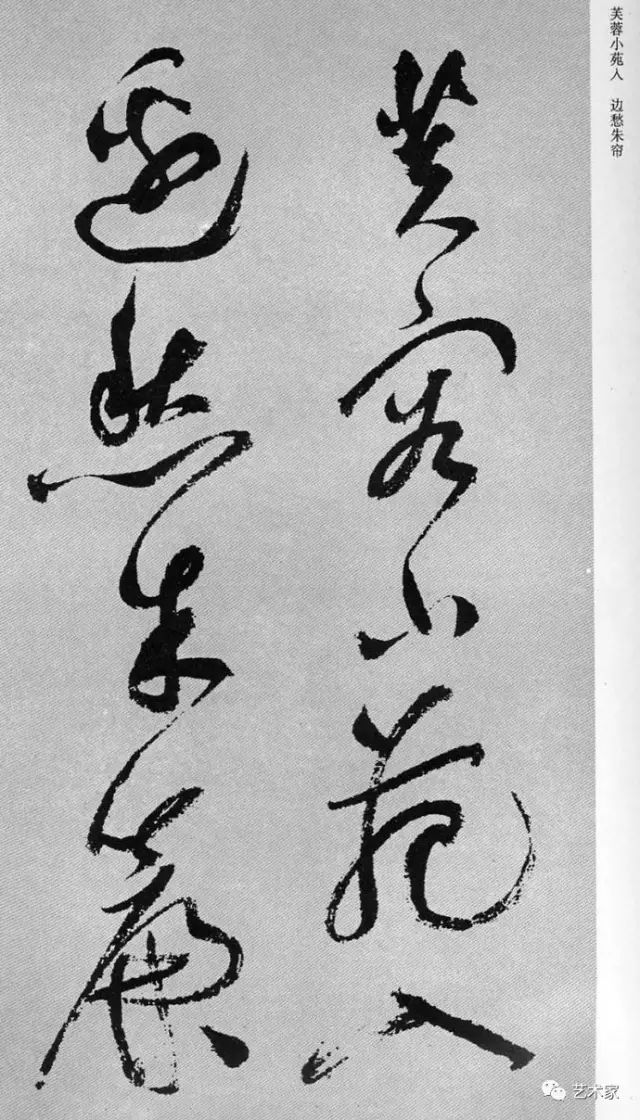 芙蓉小苑入 边愁朱帘
芙蓉小苑入
邊愁朱簾
艺术家